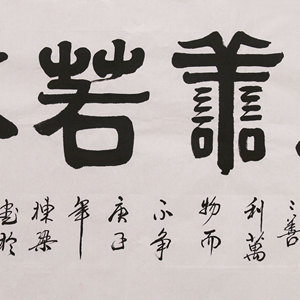 譱若
善
利萬
物而
不争
庚子
年
棟梁
書於